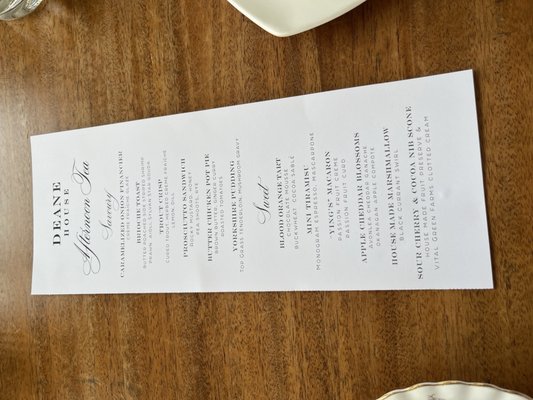 DEANE
HOUSE
Afternoon Tea
Savoury
CARAMELIZED ONION FINANCIER
BRIOCHE TOAST
BUTTER POACHED SHRIMP
TROUT CROQUE
CURED TROUT, CRÈME FRAÎCHE
LEMON DILL
PROSCIUTTO SANDWICH
ROCKY MUSTARD HONEY
BUTTER CHICKEN POT PIE
BROWN BUTTER CURRY
ROASTED TOMATOES
YORKSHIRE PUDDING
TOP GRASS TENDERLOIN, MUSHROOM GRAVY
Sweet
BLOOD ORANGE TART
CHOCOLATE MOUSSE
BUCKWHEAT COCOA SABLE
MINI TIRAMISU
MONOGRAM ESPRESSO, MASCARPONE
YING'S* MACARON
PASSION FRUIT CREMEUX
PASSION FRUIT CURD
APPLE CHEDDAR BLOSSOMS
OKANAGAN APPLE COMPOTE
HOUSE MADE MARSHMALLOW
BLACK CURRANT SWIRL
SOUR CHERRY & COCOA NIB SCONE
HOUSE MADE FRUIT PRESERVE &
VITAL GREEN FARMS CLOTTED CREAM